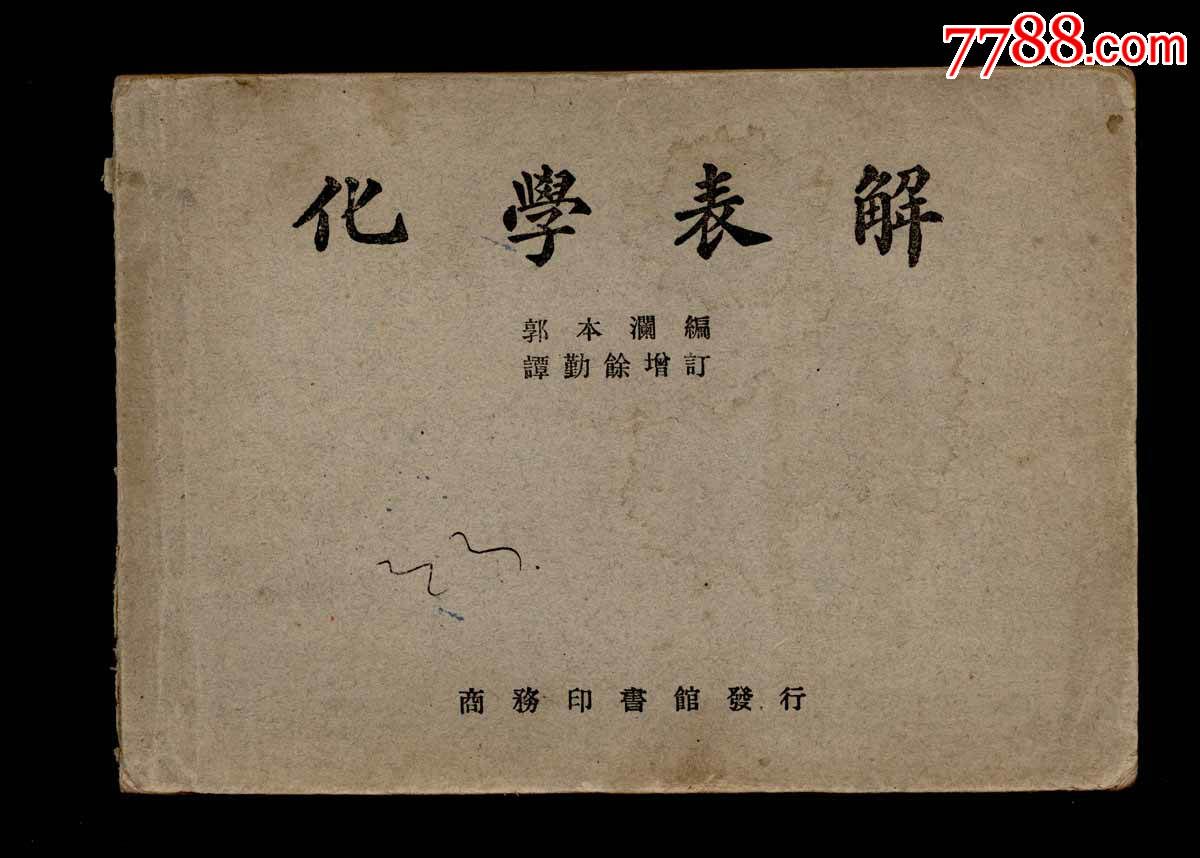 7788.com
化學表解
郭本瀾編
譚勤餘增訂
商務印書館發行